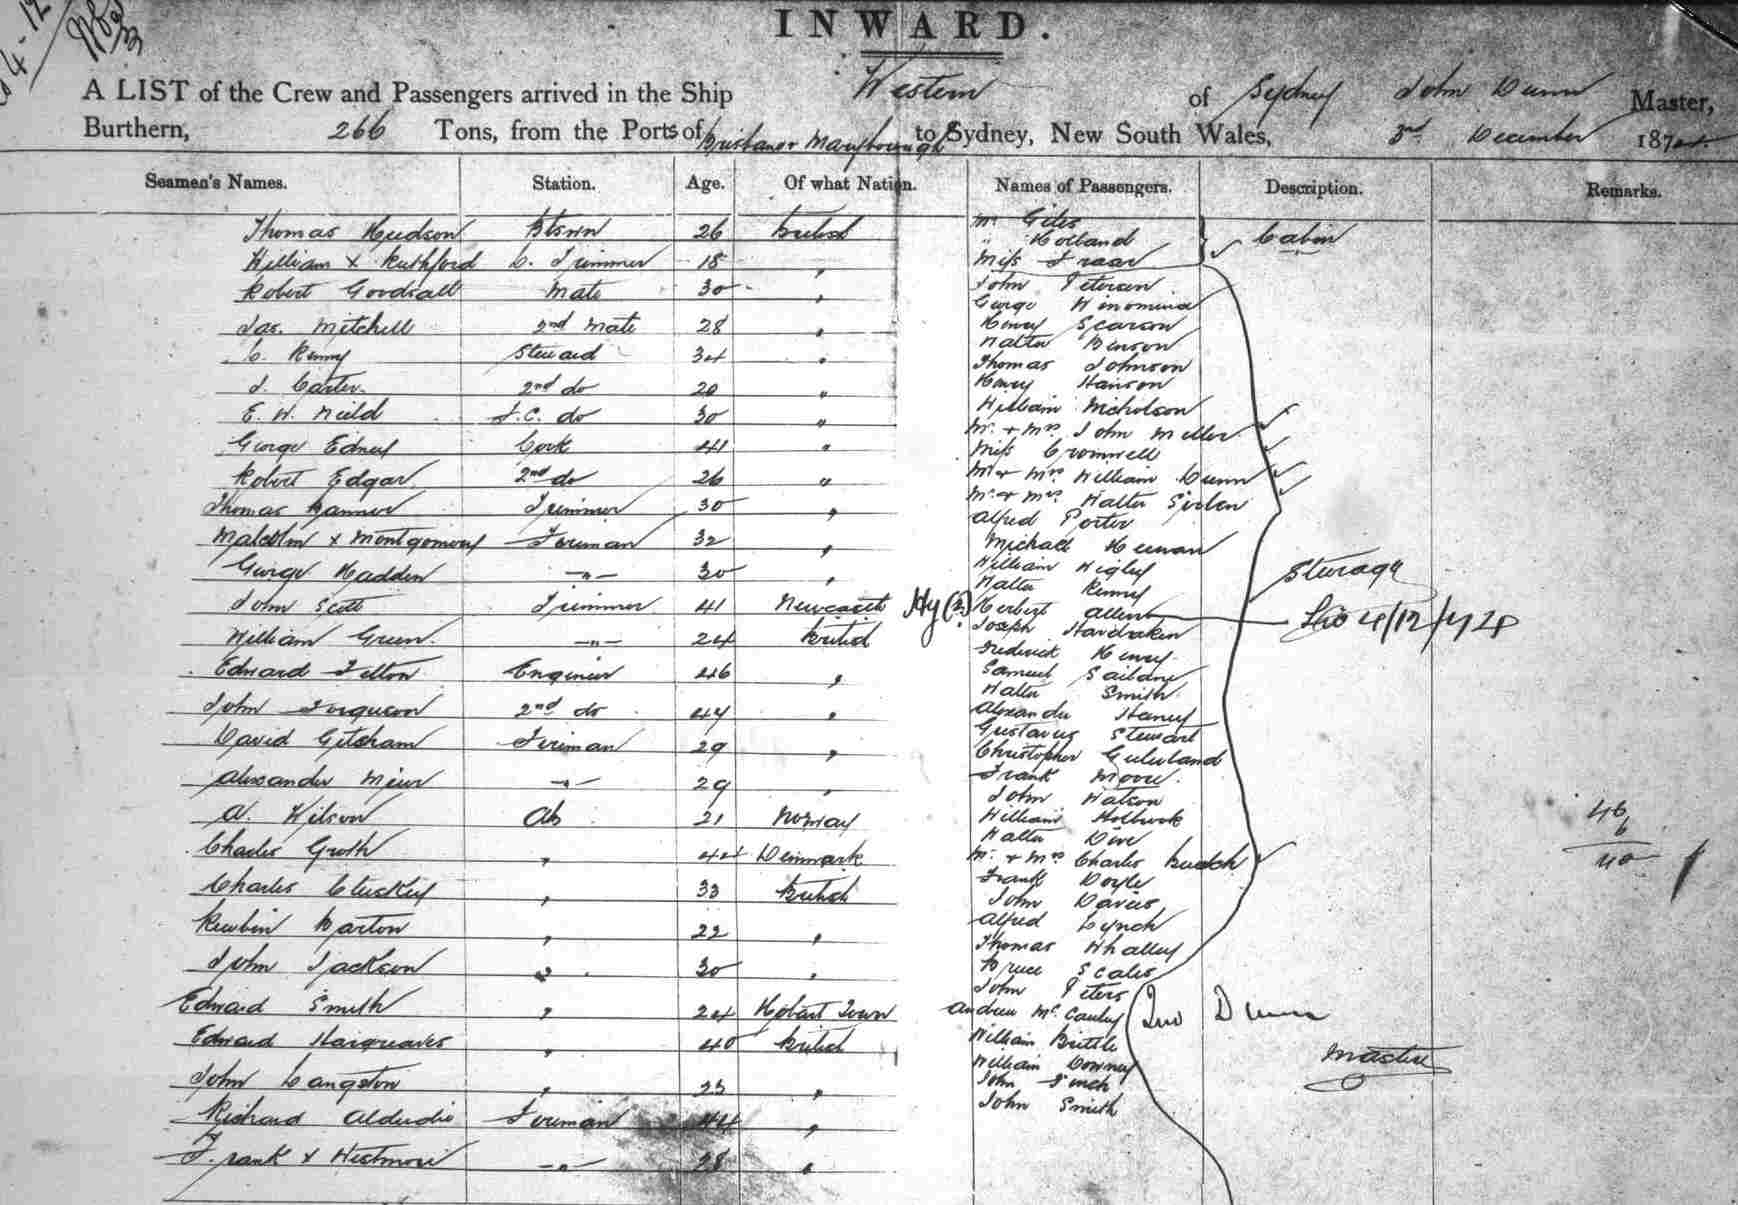 INWARD.
A LIST of the Crew and Passengers arrived in the Ship Western of Sydney John Dunn Master,
Burthern, 266 Tons, from the Ports of Brisbane & Maryborough to Sydney, New South Wales, 3rd December 187
Seamen's Names. Station. Age. Of what Nation. Names of Passengers. Description. Remarks.
Thomas Hudson 26 British
William x Ruthford C. Trimmer 18 "
Robert Goodsall Mate 30 "
Jas. Mitchell 2nd Mate 28 "
C. Kenny Steward 34 "
J. Carter 2nd do 20 "
E. W. Nield do 30 "
George Edney Cook 41 "
Robert Edgar 2nd do 26 "
Thomas Trimmer 30 "
Malcolm x Montgomery Fireman 32 "
George Hadden -"- 30 "
John Scott Trimmer 41 Newcastle
William Green -"- 24 British
Edward Felton Engineer 46 "
John Ferguson 2nd do 47 "
David Fireman 29 "
Alexander -"- 29 "
A. Wilson Ab 21 Norway
Charles Groth " 44 Denmark
Charles Cluskey " 33 British
Reubin Barton " 22 "
John Jackson " 30 "
Edward Smith " 24 Hobart Town
Edward Hargreaves " 40 British
John Langston " 23 "
Richard Fireman 44 "
Frank x Westmore -"- 28 "
Mr Giles
" Holland
Miss
Cabin
John Petersen
George
Henry
Walter Benson
Thomas Johnson
Henry Hanson
William Nicholson
Mr. & Mrs John Miller
Miss Cromwell
Mr & Mrs William Dunn
Mr & Mrs Walter
Alfred Porter
Michael Heenan
William Wigley
Walter Kenny
Herbert Allen
Joseph
Frederick Henry
Samuel
Walter Smith
Alexander
Gustavus Stewart
Christopher
Frank Moore
John Watson
William Holbrook
Walter Dive
Mr. & Mrs Charles
Frank Doyle
John Davies
Alfred Lynch
Thomas Whalley
Bruce Scales
John Peters
Andrew McCauley
William Brittle
William Downey
John
John Smith
Steerage
46
6
40
Jno Dunn
Master